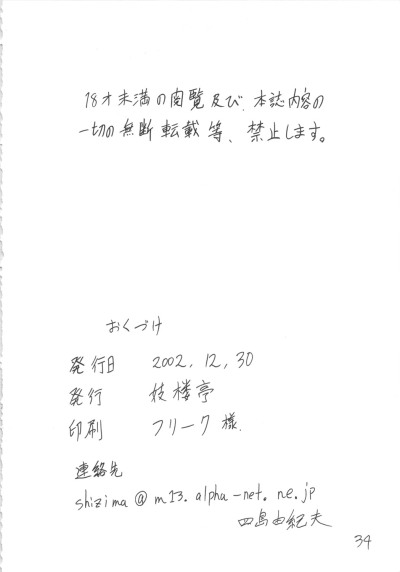 18才未満の閲覧及び、本誌内容の
一切の無断転載等、禁止します。
おくづけ
発行日 2002, 12, 30
発行 技楼亭
印刷 フリーク様.
連絡先
shizima@m13.alpha-net.ne.jp
四島由紀夫
34